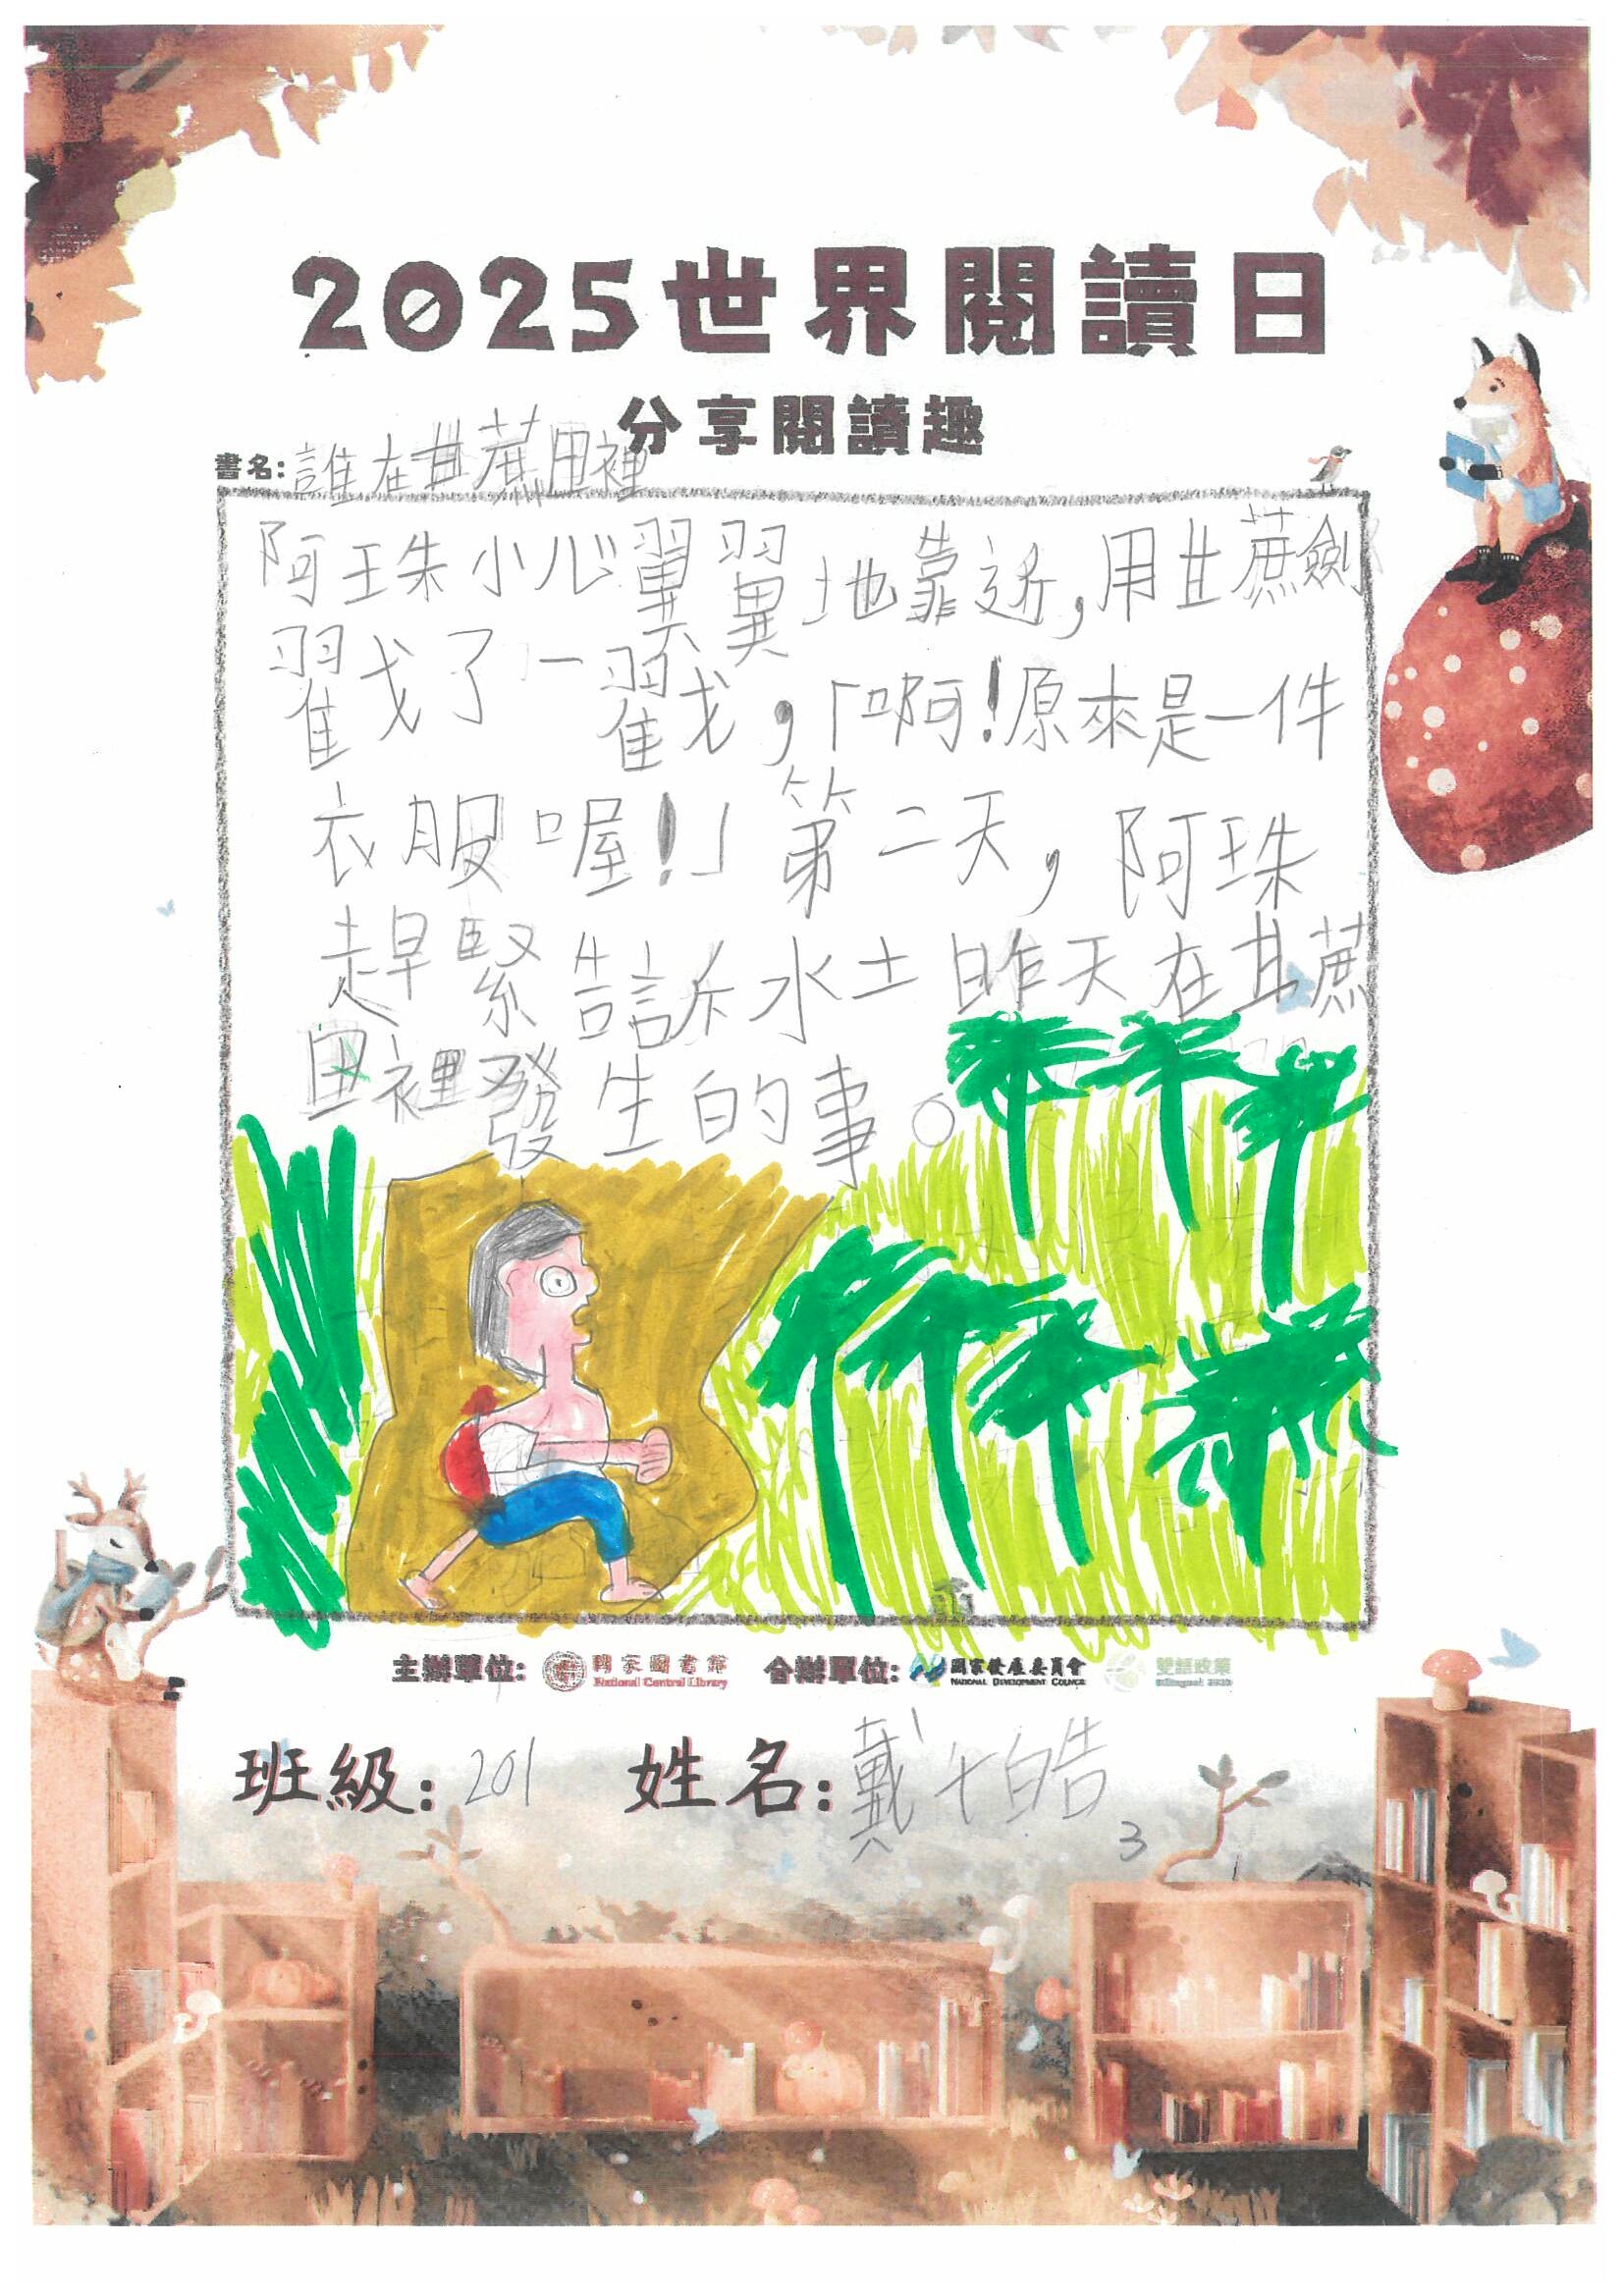 2025世界閱讀日
分享閱讀趣
書名:誰在甘蔗田裡
阿珠小心翼翼地靠近,用甘蔗劍
戳了一戳,「啊!原來是一件
衣服喔!」第二天,阿珠
趕緊告訴水土昨天在甘蔗
田裡發生的事。
主辦單位: 國家圖書館 National Central Library 合辦單位: 國家發展委員會 NATIONAL DEVELOPMENT COUNCIL 雙語政策 Bilingual 2030
班級:201 姓名:戴 皓
3